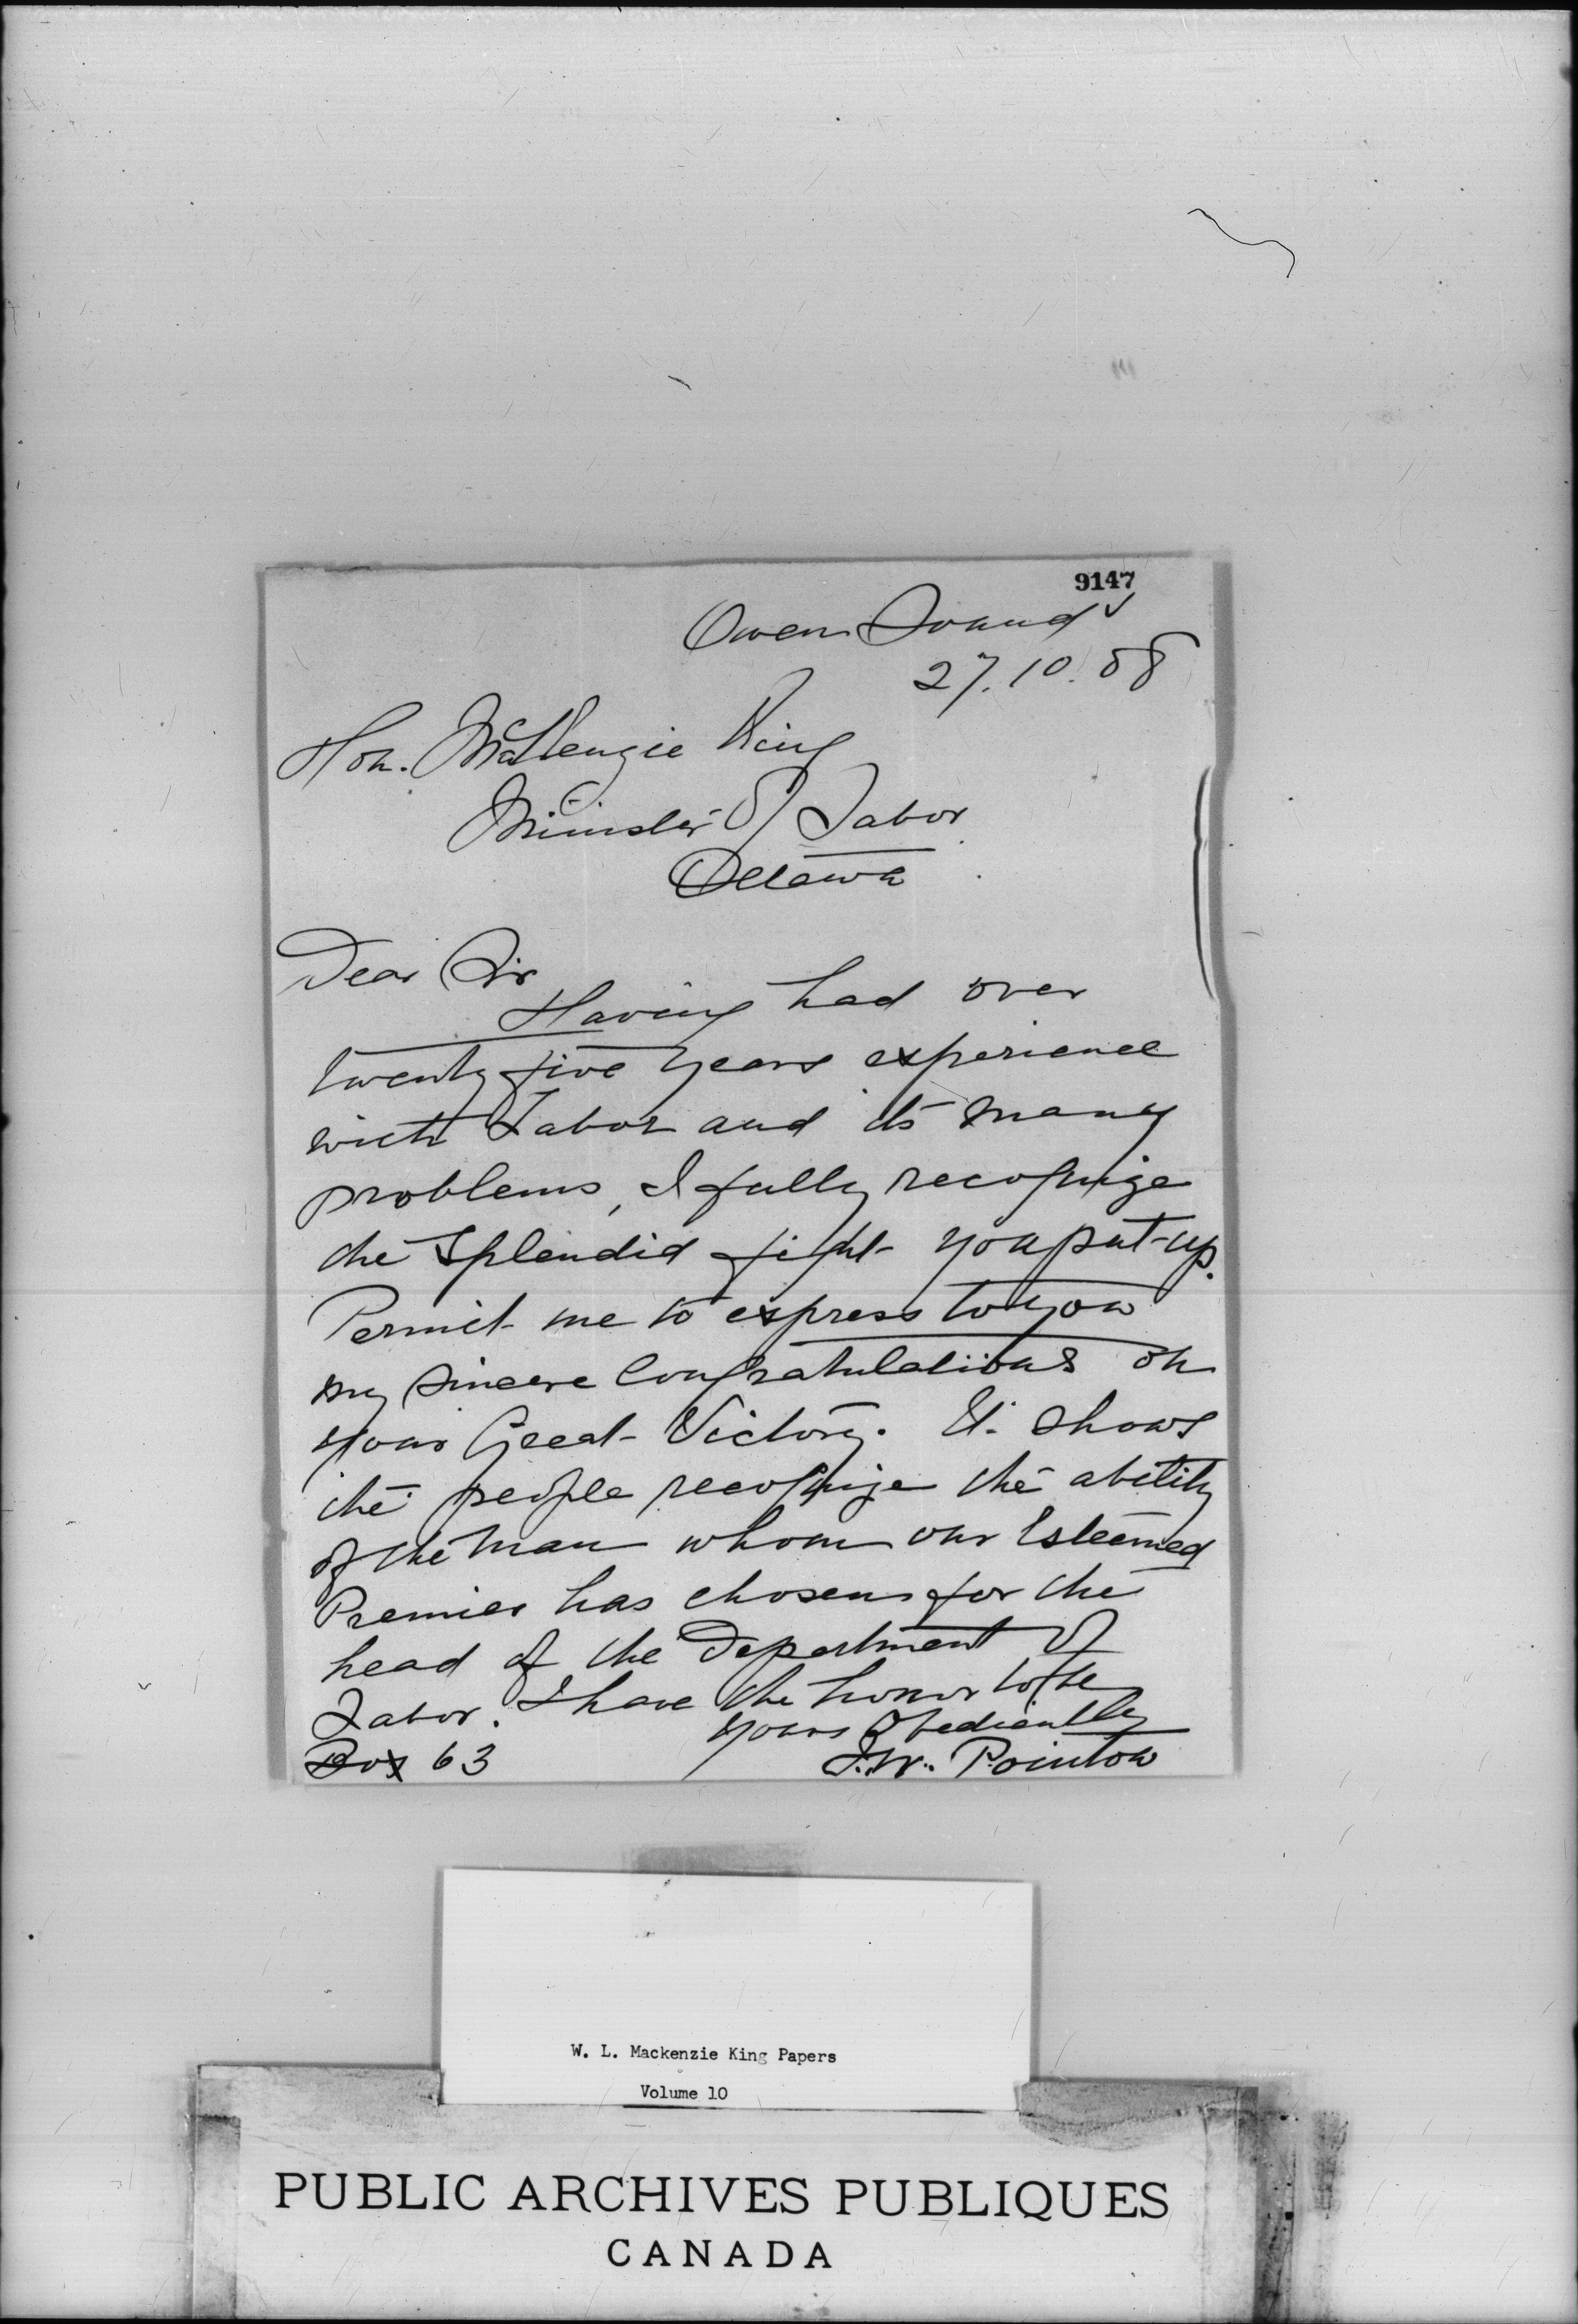 9147
Owen Sound
27.10.08
Hon. McKenzie King
Minister of Labor
Ottawa
Dear Sir
Having had over
twenty five years experience
with Labor and its many
problems, I fully recognize
the splendid fight you put up.
Permit me to express to you
my sincere Congratulations on
your Great Victory. It shows
the people recognize the ability
of the man whom our Esteemed
Premier has chosen for the
head of the Department of
Labor. I have the honor to be
yours Obediently
Box 63 J.W. Pointon
W. L. Mackenzie King Papers
Volume 10
PUBLIC ARCHIVES PUBLIQUES
CANADA